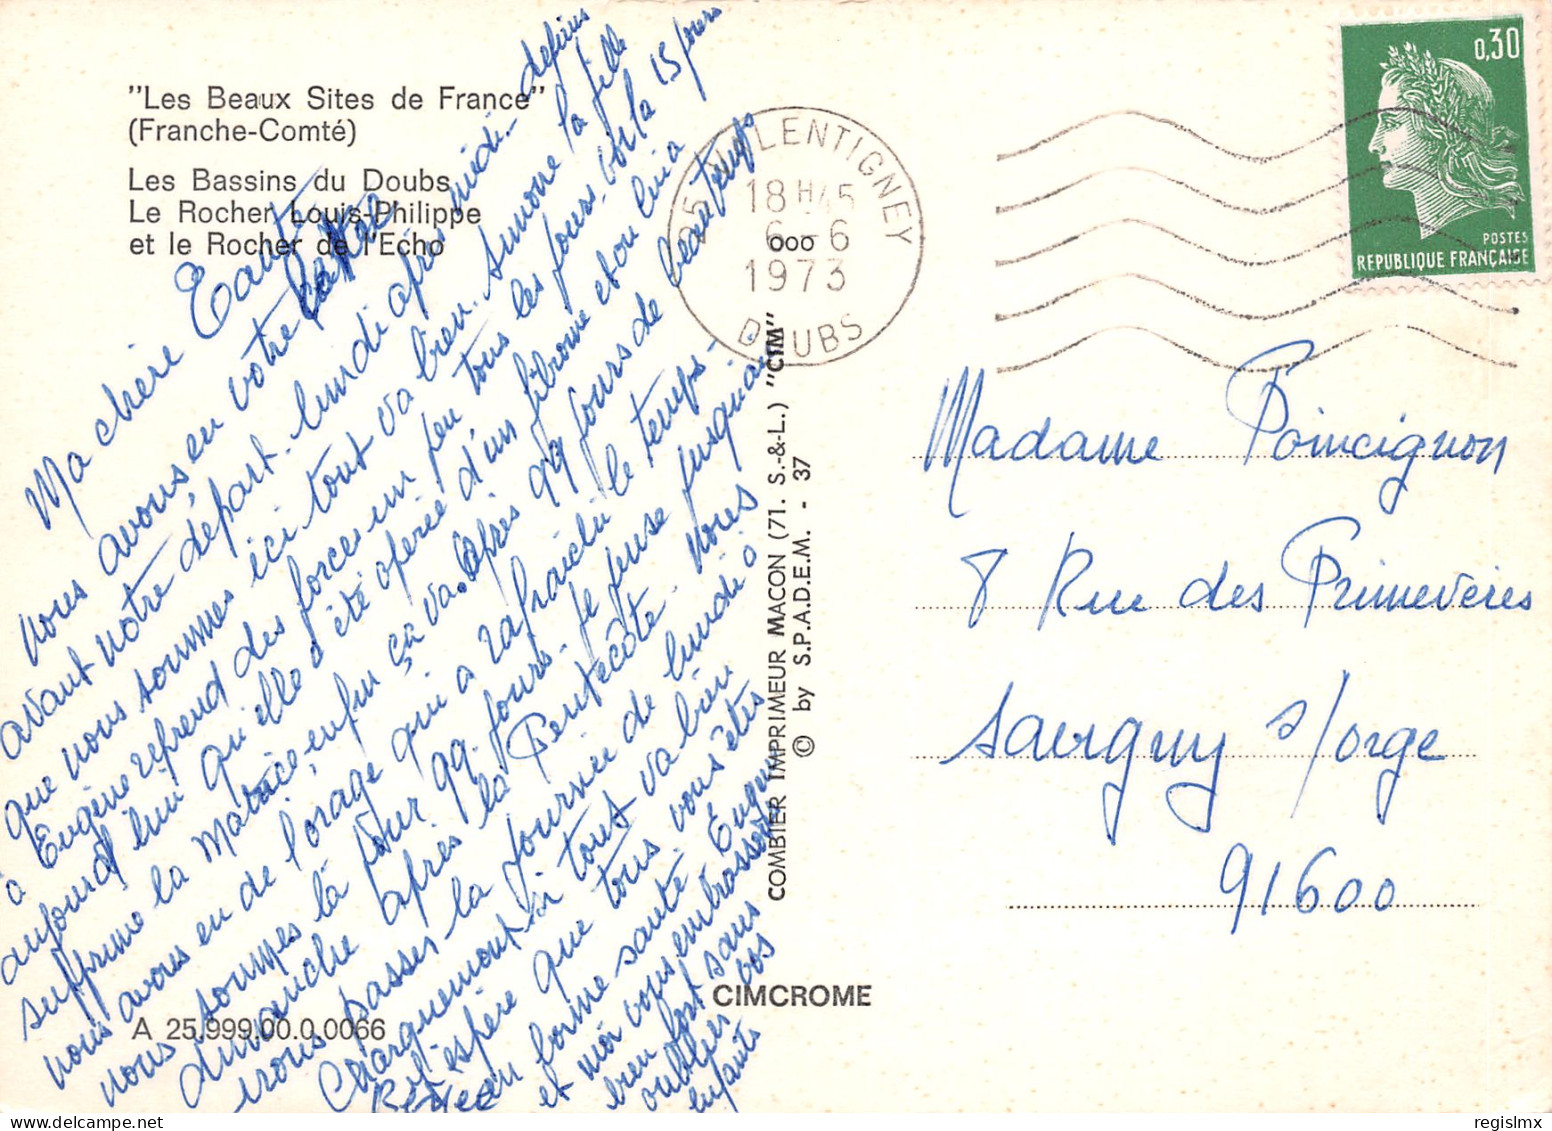 "Les Beaux Sites de France"
(Franche-Comté)
Les Bassins du Doubs
Le Rocher Louis-Philippe
et le Rocher de l'Echo
Ma chère Tante
nous avons eu votre lettre
avant notre départ. lundi après midi - depuis
que nous sommes ici tout va bien. Simone la fille
à Eugène reprend des forces un peu tous les jours. voilà 15 jours
aujourd'hui qu'elle a été opérée d'un fibrome et on lui a
supprimé la Matrice, enfin ça va. Après qq jours de beau temps
nous avons eu de l'orage qui a rafraîchi le temps -
nous sommes là pour qq. jours. je pense jusqu'au
dimanche après la Pentecôte. nous
irons passer la journée de lundi à
Charquemont si tout va bien
j'espère que tous vous êtes
en bonne santé. Eugène
et moi vous embrassons
bien fort sans
oublier vos
enfants
A 25.999.00.0.0066
CIMCROME
COMBIER IMPRIMEUR MACON (71. S.-&-L.) "CIM"
© by S.P.A.D.E.M. - 37
25 VALENTIGNEY
18 H 45
6 - 6
1973
DOUBS
0,30
POSTES
REPUBLIQUE FRANÇAISE
Madame Poincignon
8 Rue des Primevères
Savigny s/orge
91600
regislmx